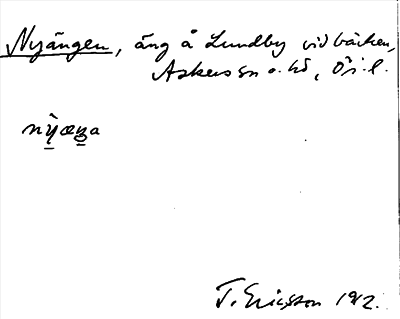 Nyängen, äng å Lundby vid bäcken,
Askers sn o. hd, Ör. l.
nỳ̱æŋa
T. Ericsson 1912.